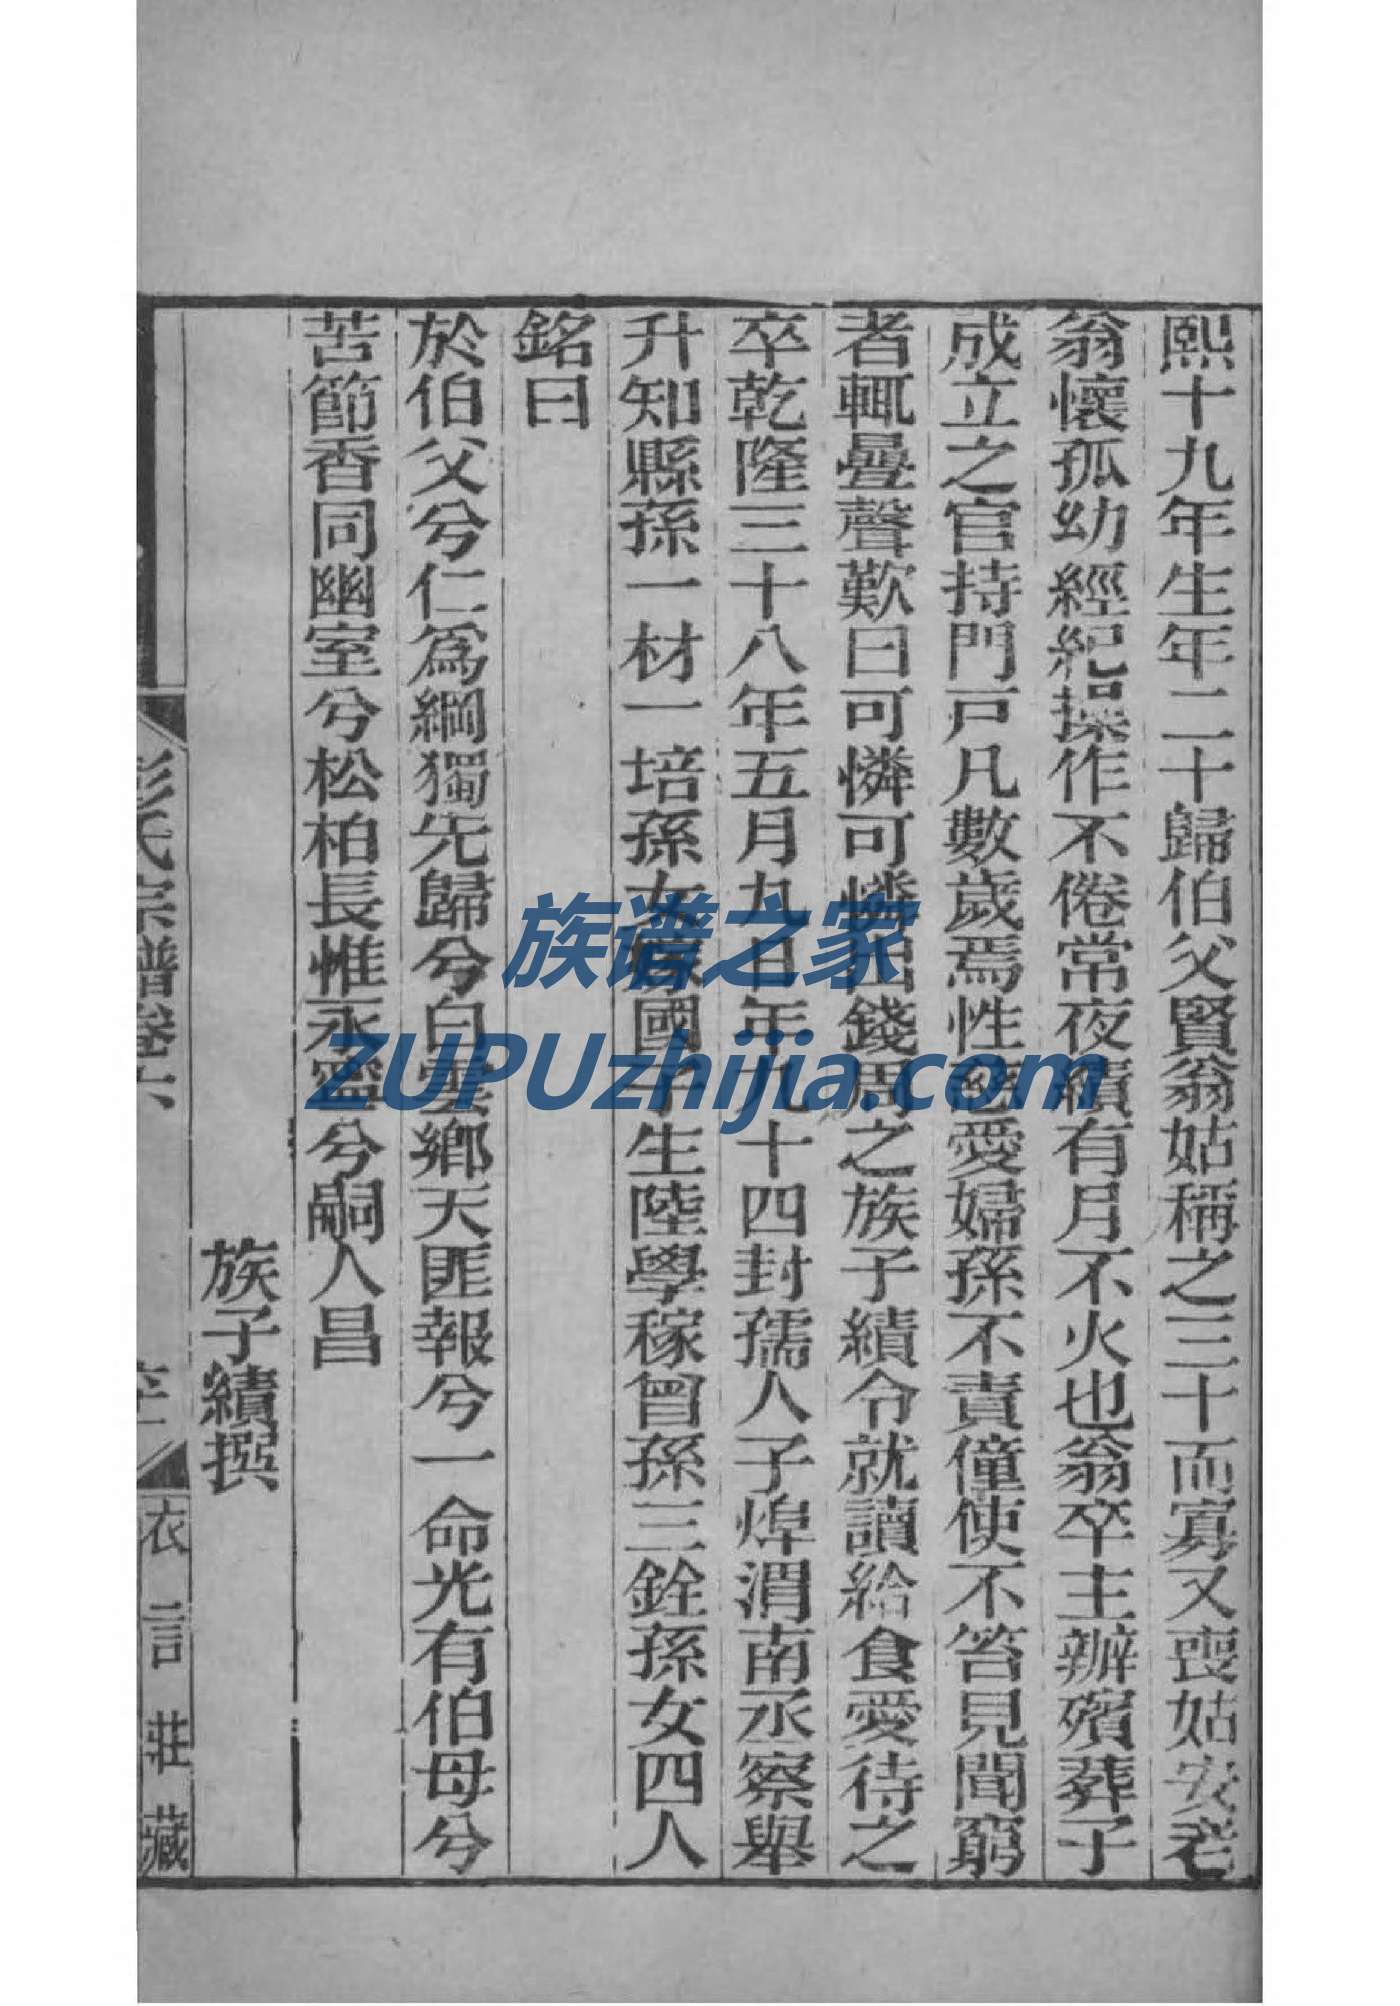 熙十九年生年二十歸伯父賢翁姑稱之三十而寡又喪姑安老
翁懷孤幼經紀操作不倦常夜績有月不火也翁卒主辦殯葬子
成立之官持門戸凡數歲焉性慈愛婦孫不責僮使不笞見聞窮
者輒曡聲歎曰可憐可憐出錢周之族子績令就讀給食愛待之
卒乾隆三十八年五月九日年九十四封孺人子煒渭南丞察舉
升知縣孫一材一培孫女嫁國子生陸學稼曾孫三銓孫女四人
銘曰
於伯父兮仁爲綱獨先歸兮白雲鄉天匪報兮一命光有伯母兮
苦節香同幽室兮松柏長惟永寧兮嗣人昌
族子績撰
彭氏宗譜卷六
衣言莊藏
族谱之家
ZUPUzhijia.com